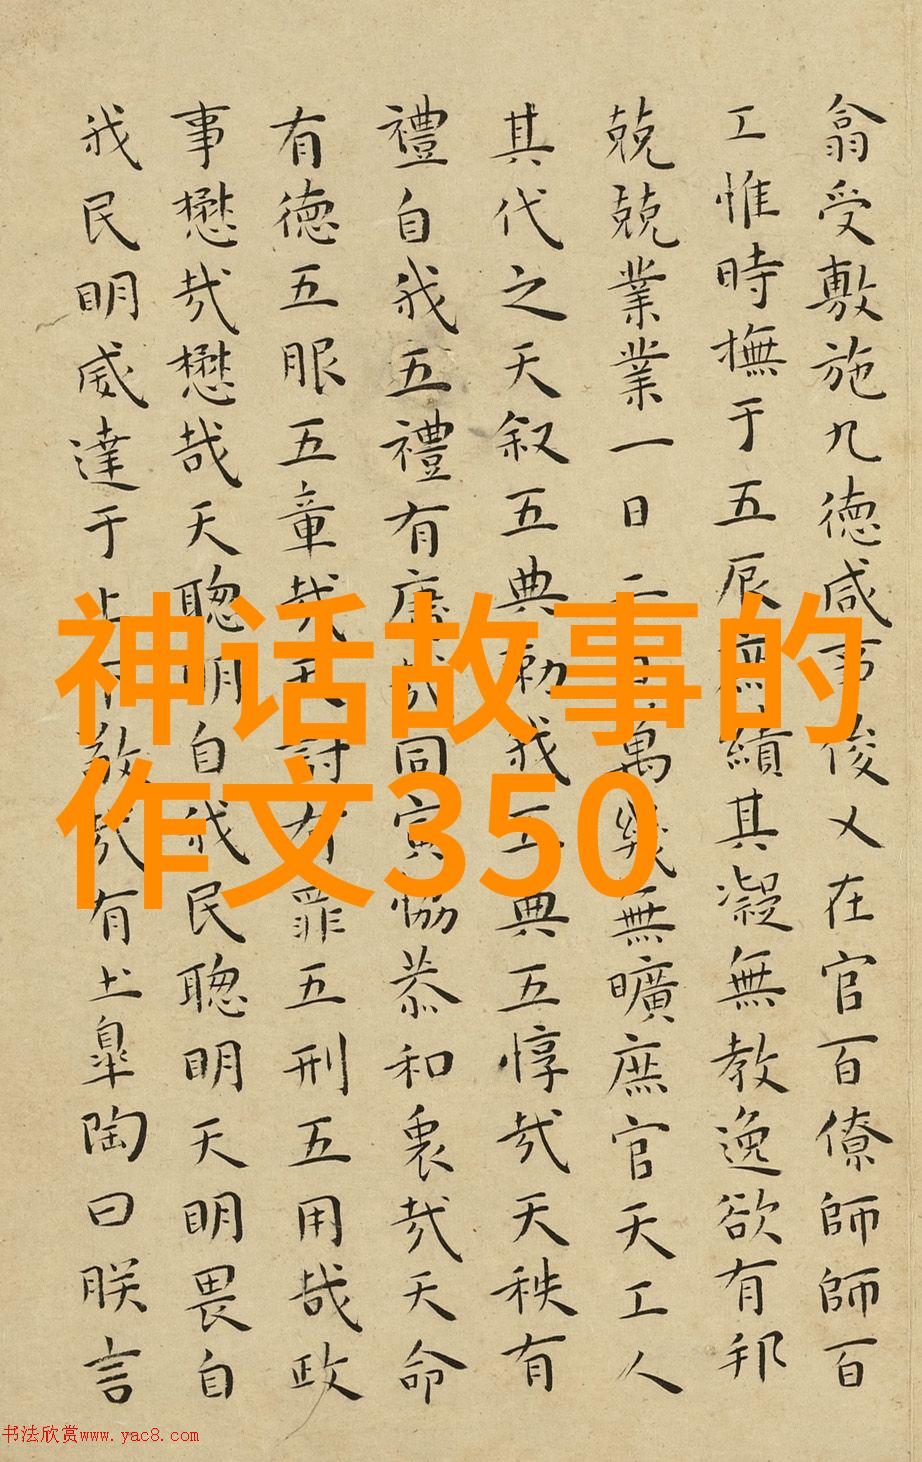 翕受敷施九德咸事俊乂在官百僚師師百
工惟時撫于五辰庶績其凝無教逸欲有邦
兢兢業業一日二日萬幾無曠庶官天工人
其代之天叙五典勑我五典五惇哉天秩有
禮自我五禮有庸哉同寅恊恭和衷哉天命
有德五服五章哉天討有罪五刑五用哉政
事懋哉懋哉天聰明自我民聰明天明畏自
我民明威達于上下敬哉有土皋陶曰朕言
神话故事的
作文350
书法欣赏www.yac8.com